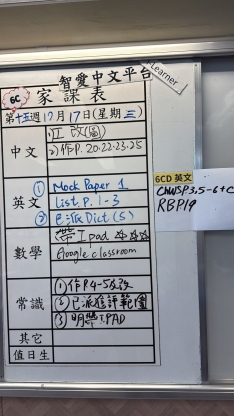 智愛中文平台
Learner
6C
家課表
第十五週12月17日(星期三)
中文
① 改(圖)
②作P.20.22.23.25
英文
① Mock Paper 1
List P.1-3
② 已派Dict(5)
6CD 英文
CHWSP3,5-6+C
RBP19
數學
帶Ipad
Google classroom
常識
①作P4-5及改
②已派進評範圍
③明帶IPAD
其它
值日生